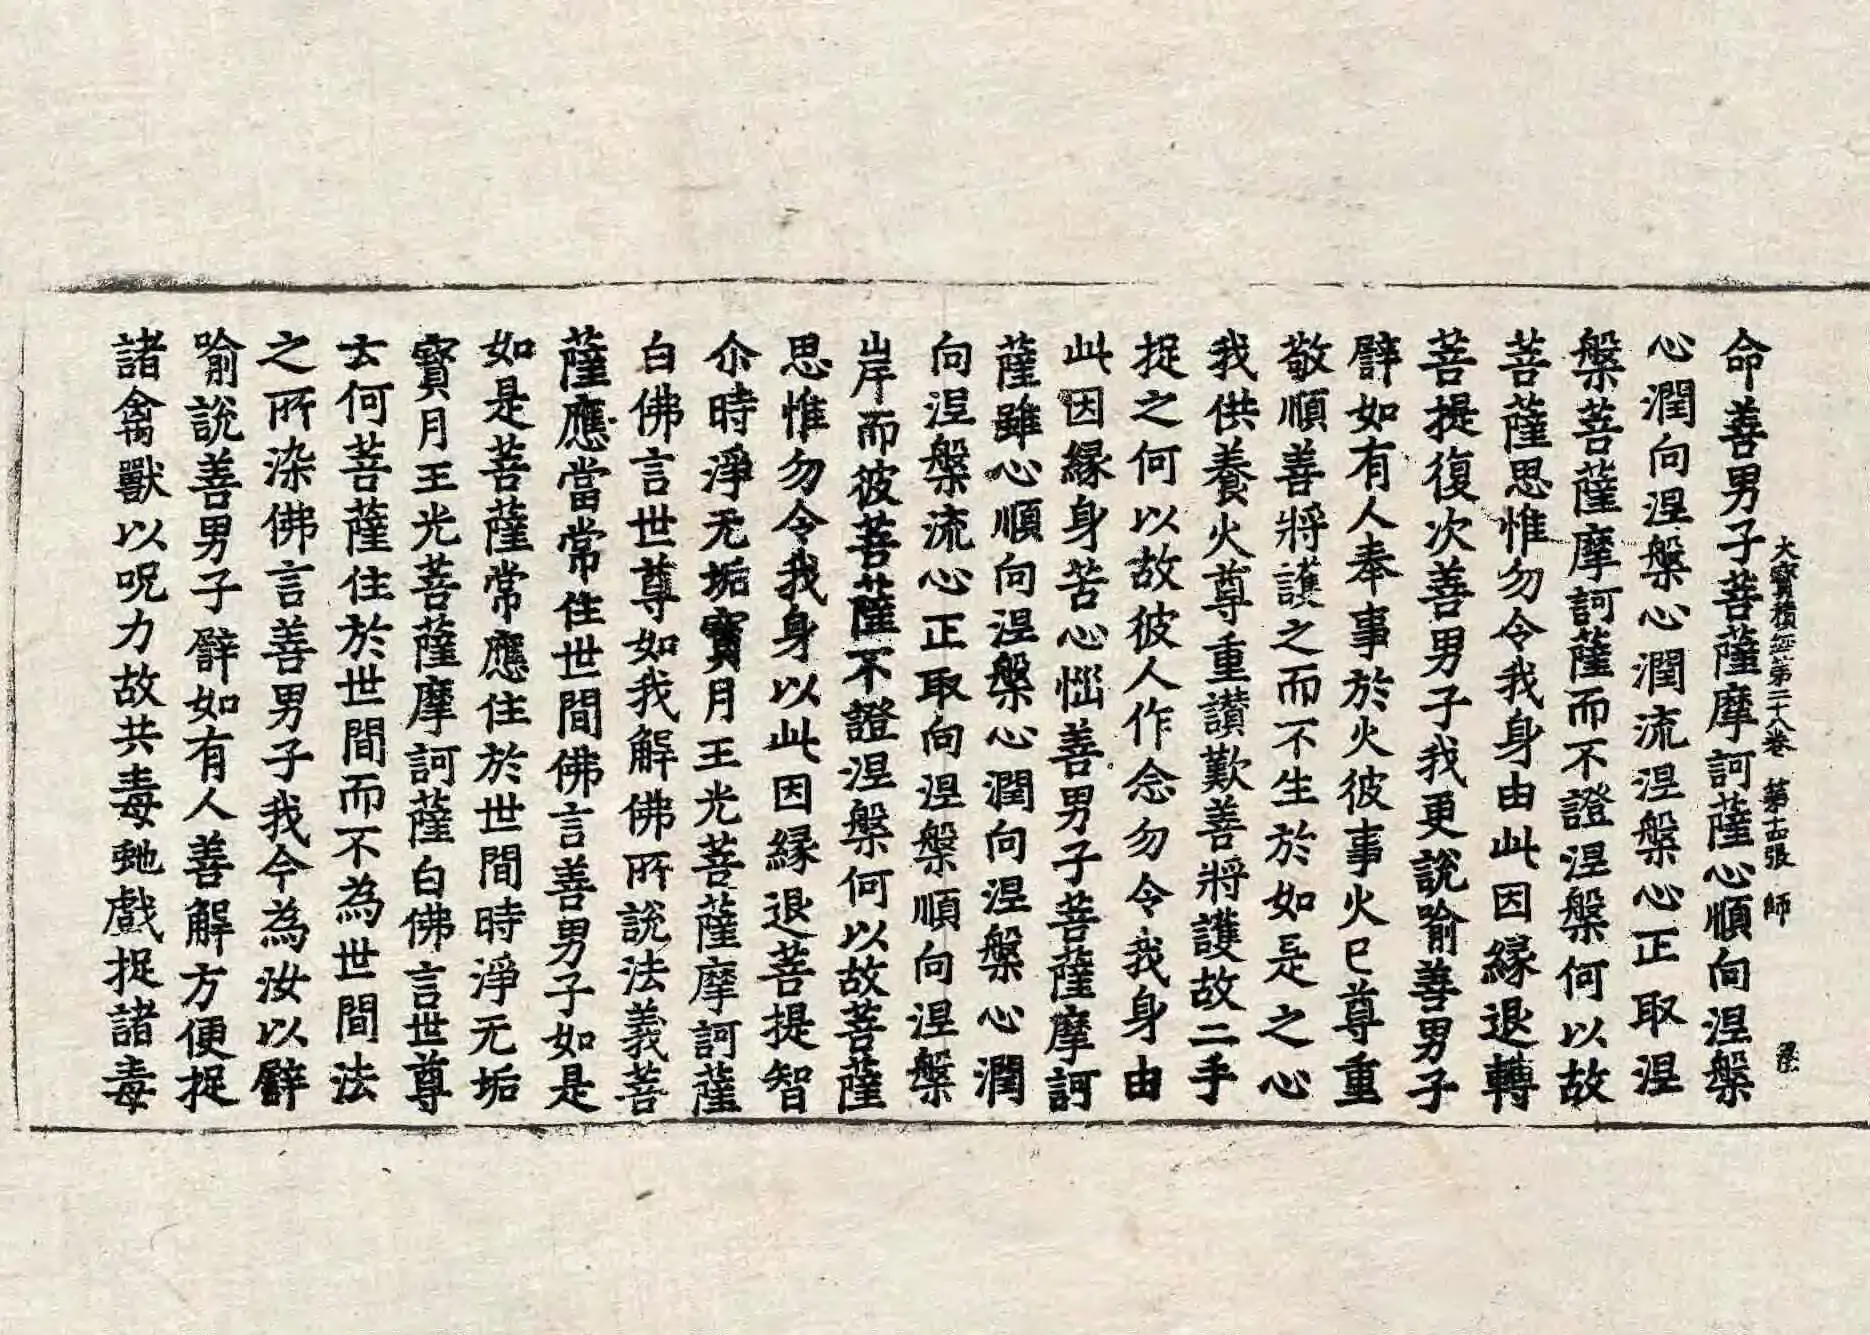 大寶積經第二十八卷 第十五張 師
命善男子菩薩摩訶薩心順向涅槃
心潤向涅槃心潤流涅槃心正取涅
槃菩薩摩訶薩而不證涅槃何以故
菩薩思惟勿令我身由此因緣退轉
菩提復次善男子我更說喻善男子
譬如有人奉事於火彼事火已尊重
敬順善將護之而不生於如是之心
我供養火尊重讚歎善將護故二手
捉之何以故彼人作念勿令我身由
此因緣身苦心惱善男子菩薩摩訶
薩雖心順向涅槃心潤向涅槃心潤
向涅槃流心正取向涅槃順向涅槃
岸而彼菩薩不證涅槃何以故菩薩
思惟勿令我身以此因緣退菩提智
尒時淨无垢寶月王光菩薩摩訶薩
白佛言世尊如我解佛所說法義菩
薩應當常住世間佛言善男子如是
如是菩薩常應住於世間時淨无垢
寶月王光菩薩摩訶薩白佛言世尊
云何菩薩住於世間而不為世間法
之所染佛言善男子我今為汝以譬
喻說善男子譬如有人善解方便捉
諸禽獸以呪力故共毒虵戲捉諸毒